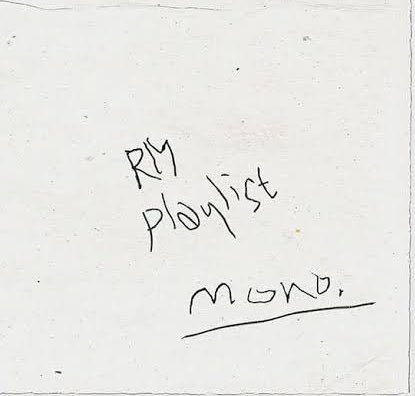 RM
playlist
mono.